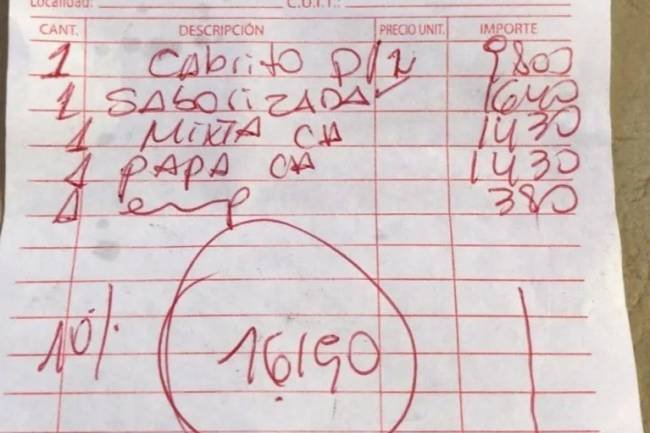 Localidad: C.U.I.T.:
CANT. DESCRIPCIÓN PRECIO UNIT. IMPORTE
1 CABrito p/2 9800
1 SABORIZADA 1640
1 MIXTA CH 1430
1 PAPA CH 1430
1 emp 380
10% 16190